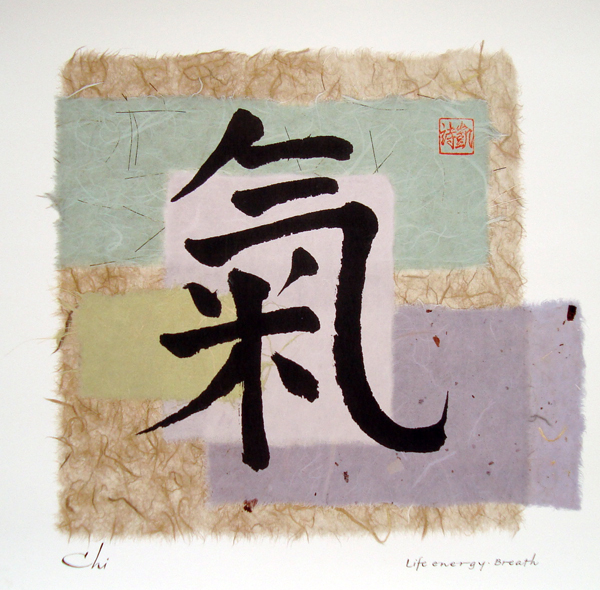 氣
凱詩
Chi
Life energy · Breath